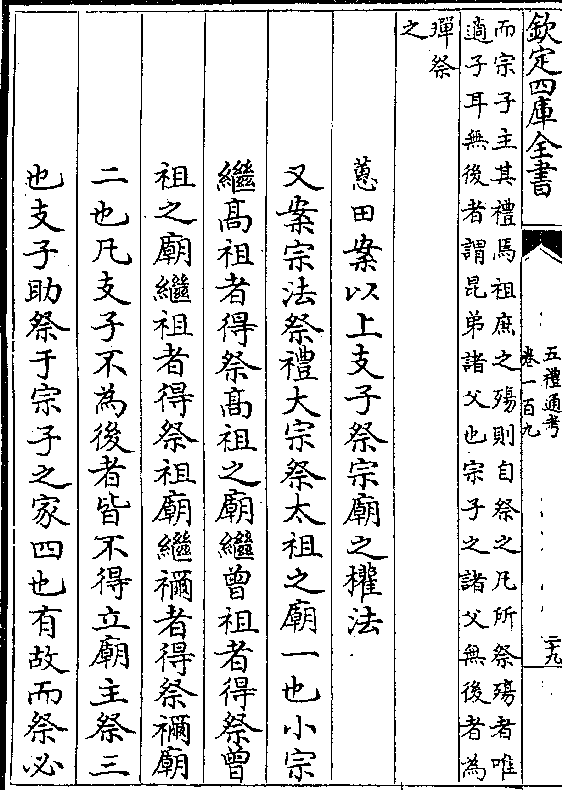 欽定四庫全書
五禮通考
卷一百九
二十九
而宗子主其禮焉祖庶之殤則自祭之凡所祭殤者唯
適子耳無後者謂昆弟諸父也宗子之諸父無後者為
墠祭
之
蕙田案以上支子祭宗廟之權法
又案宗法祭禮大宗祭太祖之廟一也小宗
繼髙祖者得祭髙祖之廟繼曾祖者得祭曾
祖之廟繼祖者得祭祖廟繼禰者得祭禰廟
二也凡支子不為後者皆不得立廟主祭三
也支子助祭于宗子之家四也有故而祭必